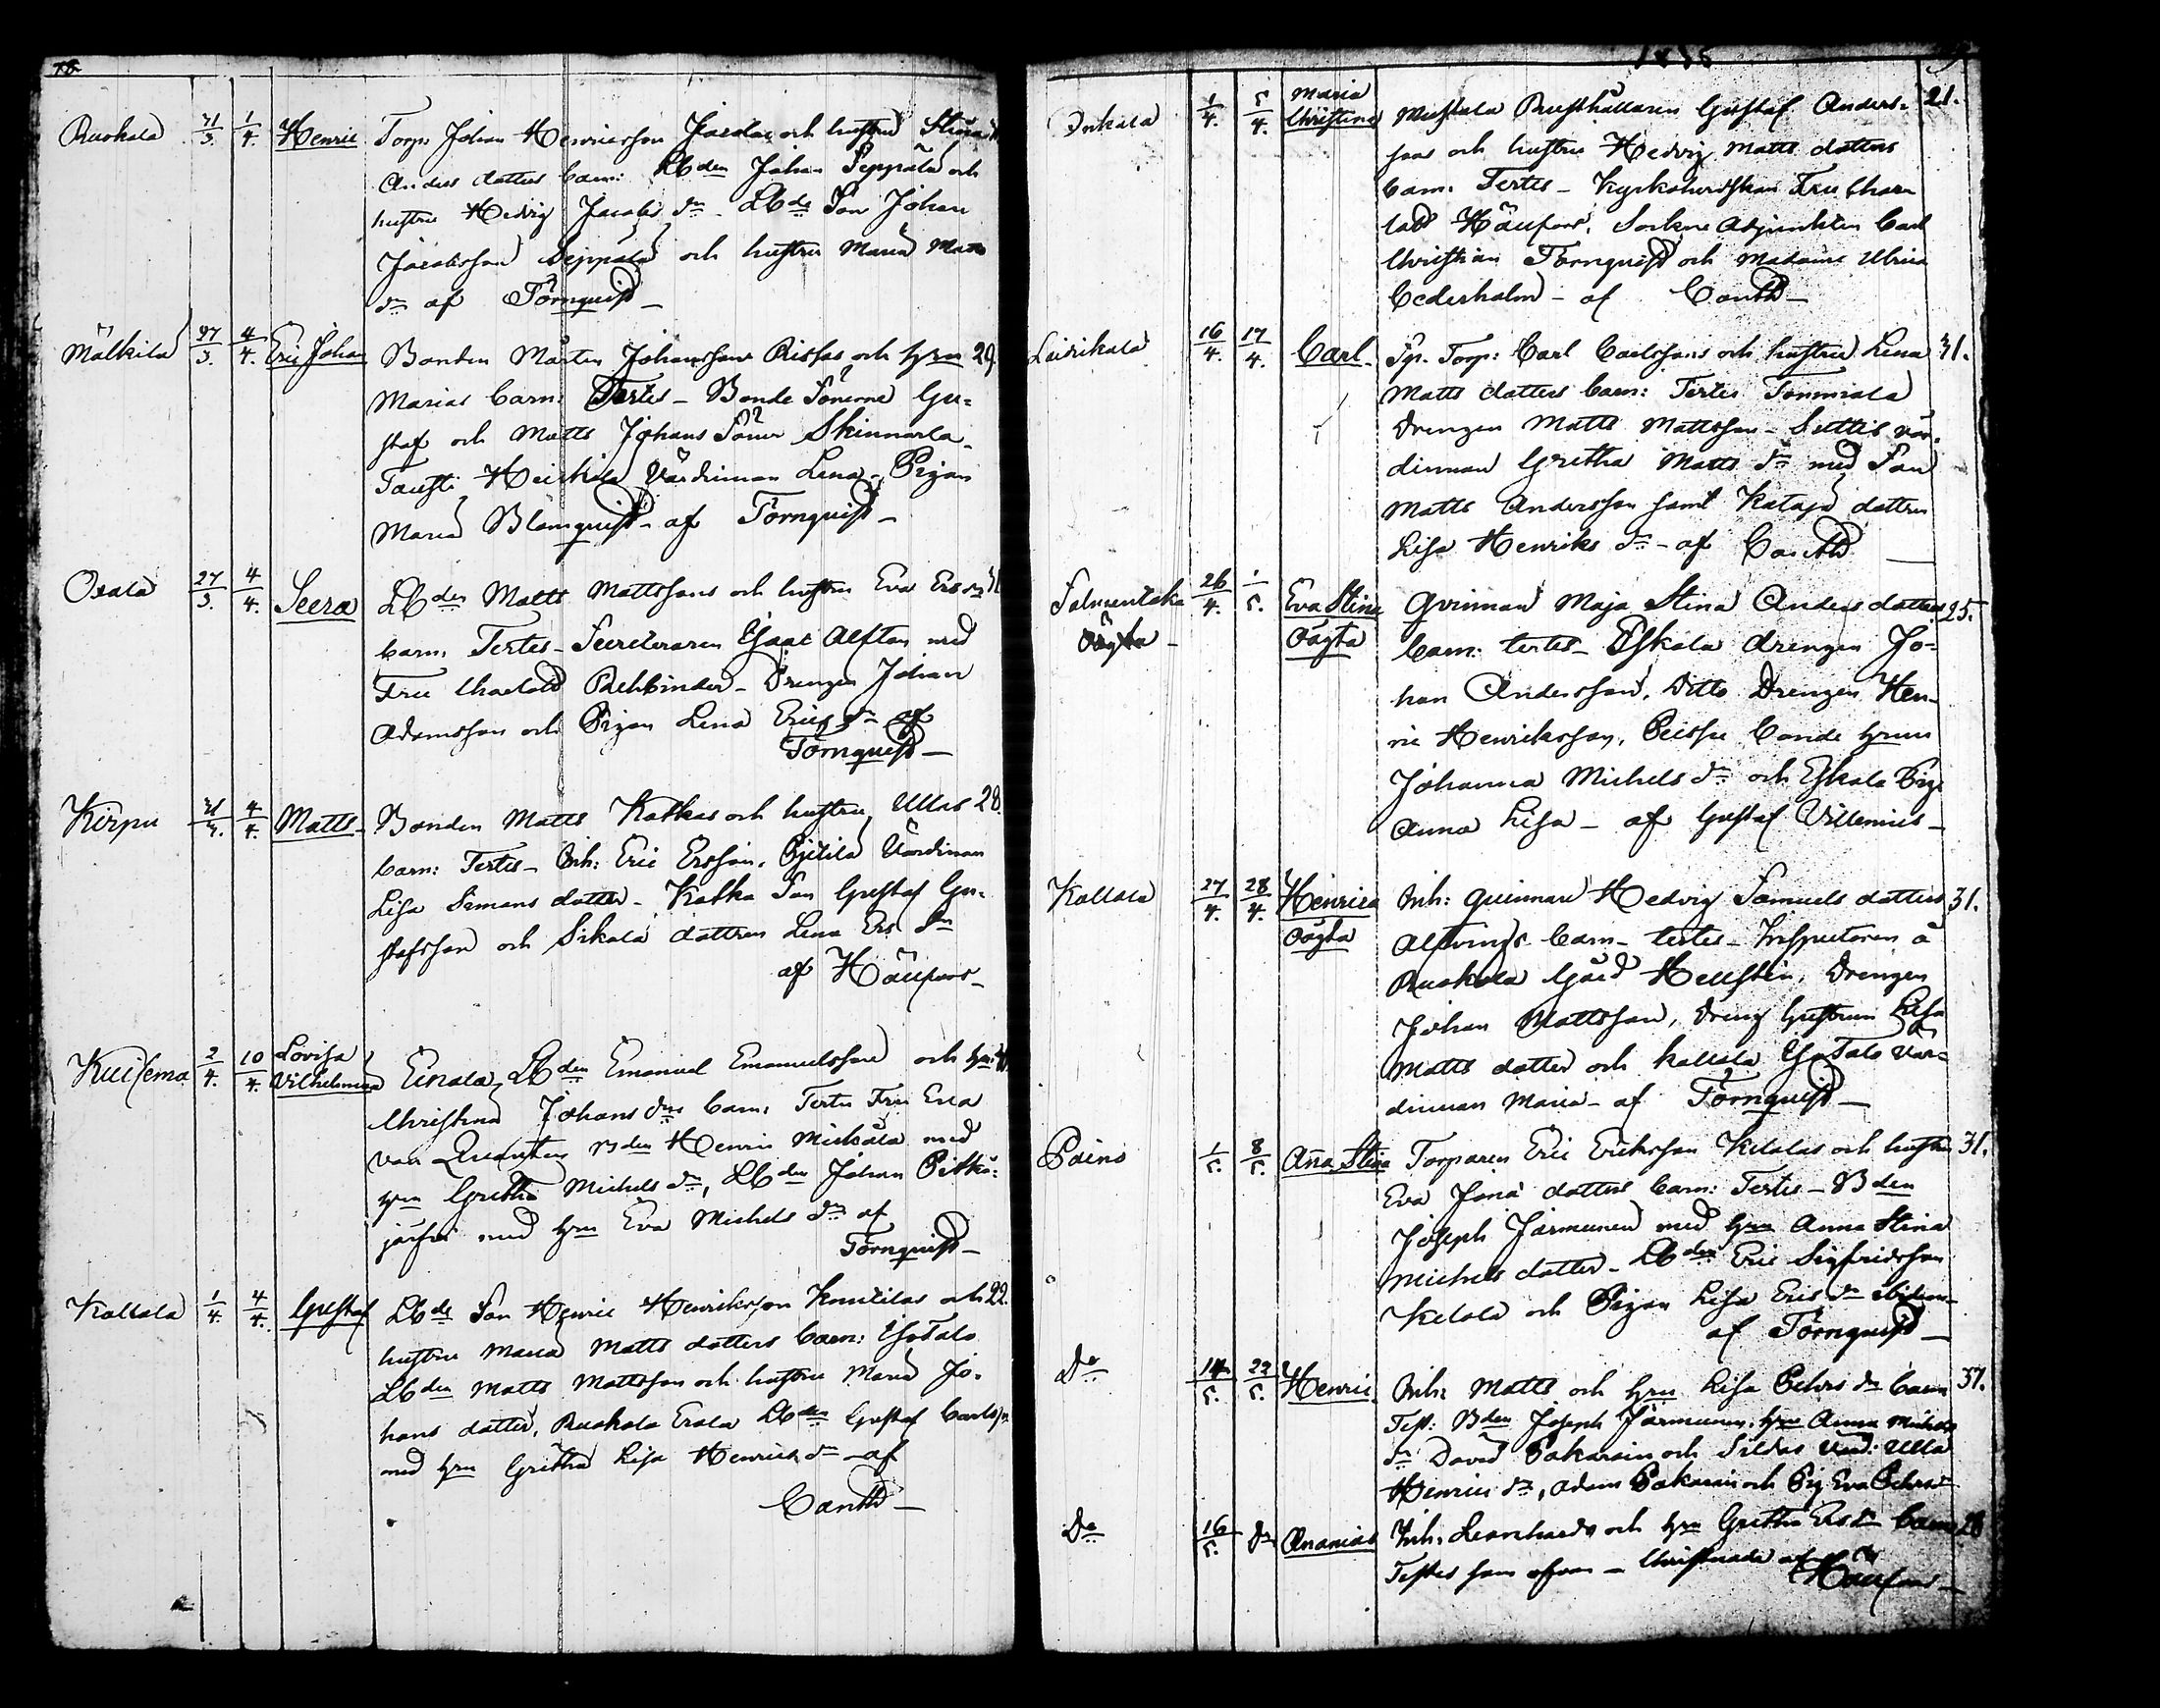 78
Ruskala 31/3. 1/4. Henric Torp. Johan Henricsson Jacolas och hustru Stina
Anders dotters barn: Lbden Johan Seppälä och
hustru Hedvig Jacobs dr. Lbds Son Johan
Jacobsson Seppälä och hustru Maria Matts
dr af Törnquist
Mälkilä 27/3. 4/4. Eric Johan Bonden Mårten Johanssons Ristas och hru 29.
Marias barn: Testes Bonde Sönerne Gu=
staf och Matts Johans Söner Skinnarla
Tausti Heickilä Värdinnan Lena Pigan
Maria Blomquist af Törnquist
27/3. 4/4. Lbden Matts Mattssons och hustru Eva Ers dr
barn: Testes Secreteraren Isaac Alftan med
Fru Charlotte Rehbinder Drengen Johan
Adamsson och Pigan Lena Erics dr af
Törnquist
Kirpu 31/3. 4/4. Matts Bonden Matts Katkas och hustru Ullas 28
barn: Testes Inh: Eric Ersson, Värdinnan
Lisa Simons dotter Katka Son Gustaf Gu=
stafsson och Sikala dottren Lena Ers dr
af Häufors
Kuisema 2/4. 10/4. Lovisa
Vilhelmina Lbden Emanuel Emanuelsson och hru
Christina Johans drs barn: Testes Fru Eva
von Quanten Bden Henric Mickälä med
hru Gretha Michels dr, Lbden Johan Pitkä=
järfvi med hru Eva Michels dr af
Törnquist
Kallala 1/4. 4/4. Gustaf Lbds Son Henric Henriksson Knuutilas och 22.
hustru Maria Matts dotters barn: IsoTalo
Lbden Matts Mattsson och hustru Maria Jo=
hans dotter, Ruskala Erola Lbden Gustaf Carlss:
med hru Gretha Lisa Henrics dr af
Canth
Inkala 1/4. 5/4. Maria
Christina Rusthållaren Gustaf Anders= 21.
sons och hustru Hedvig Matts dotters
barn: Testes Kyrkoherdskan Fru Char
lott Häufors, Sockne Adjunkten Carl
Christian Törnquist och Madame Ulrica
Cederholm af Canth
16/4. 17/4. Carl Torp: Carl Carlssons och hustru Lena 31.
Matts dotters barn: Testes Tommola
Drengen Matts Mattsson Suttis vär=
dinnan Gretha Matts dr med Son
Matts Andersson samt Kataja dottren
Lisa Henriks dr af Canth
Salmentaka 26/4. 1/5. Eva Stina
Oägta Qvinnan Maja Stina Anders dotters 25.
barn: testes Eskola drengen Jo=
han Andersson, Ditto Drengen Hen=
ric Henriksson, bonde hrun
Johanna Michels dr och Eskola Pig:
Anna Lisa af Gustaf Villenius
Kallala 27/4. 28/4. Henrica
Oägta Inh: Quinnan Hedvig Samuels dotters 31.
barn testes Inspectoren å
Ruskala Gård Hellsten, Drengen
Johan Mattsson, Dreng hustrun Lisa
Matts dotter och Kallala IsoTalo vär=
dinnan Maria af Törnquist
Paino 1/5. 8/5. Aña Stina Torparen Eric Eriksson Kelalas och hustru 31.
Eva Jona dotters barn: Testes Bden
Joseph Järmunen med hru Anna Stina
Michels dotter Lbden Eric Sigfridsson
Kelala och Pigan Lisa Erics dr
af Törnquist
Do 14/5. 22/5. Henric Inh: Matts och hru Lisa Pehrs dr barn 37.
Test: Bden Joseph Järmunen, hru Anna Michels
dr David Pakarain och Värd: Ulla
Henrics dr, Adam Pakarain och Pig Eva Pehrs dr
Do 16/5. Do Ananias Inh: Leonhards och hru Gretha Ers dr barn 28
Testes som ofvan Christnade af Häufors